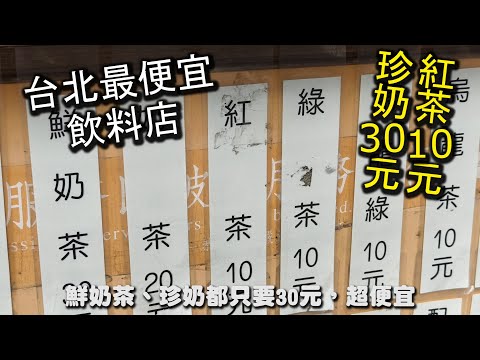 台北最便宜
飲料店
紅茶10元
珍奶30元
鮮奶茶
茶20
紅茶10元
綠茶10元
綠10元
烏龍茶10元
服務
鮮奶茶、珍奶都只要30元，超便宜